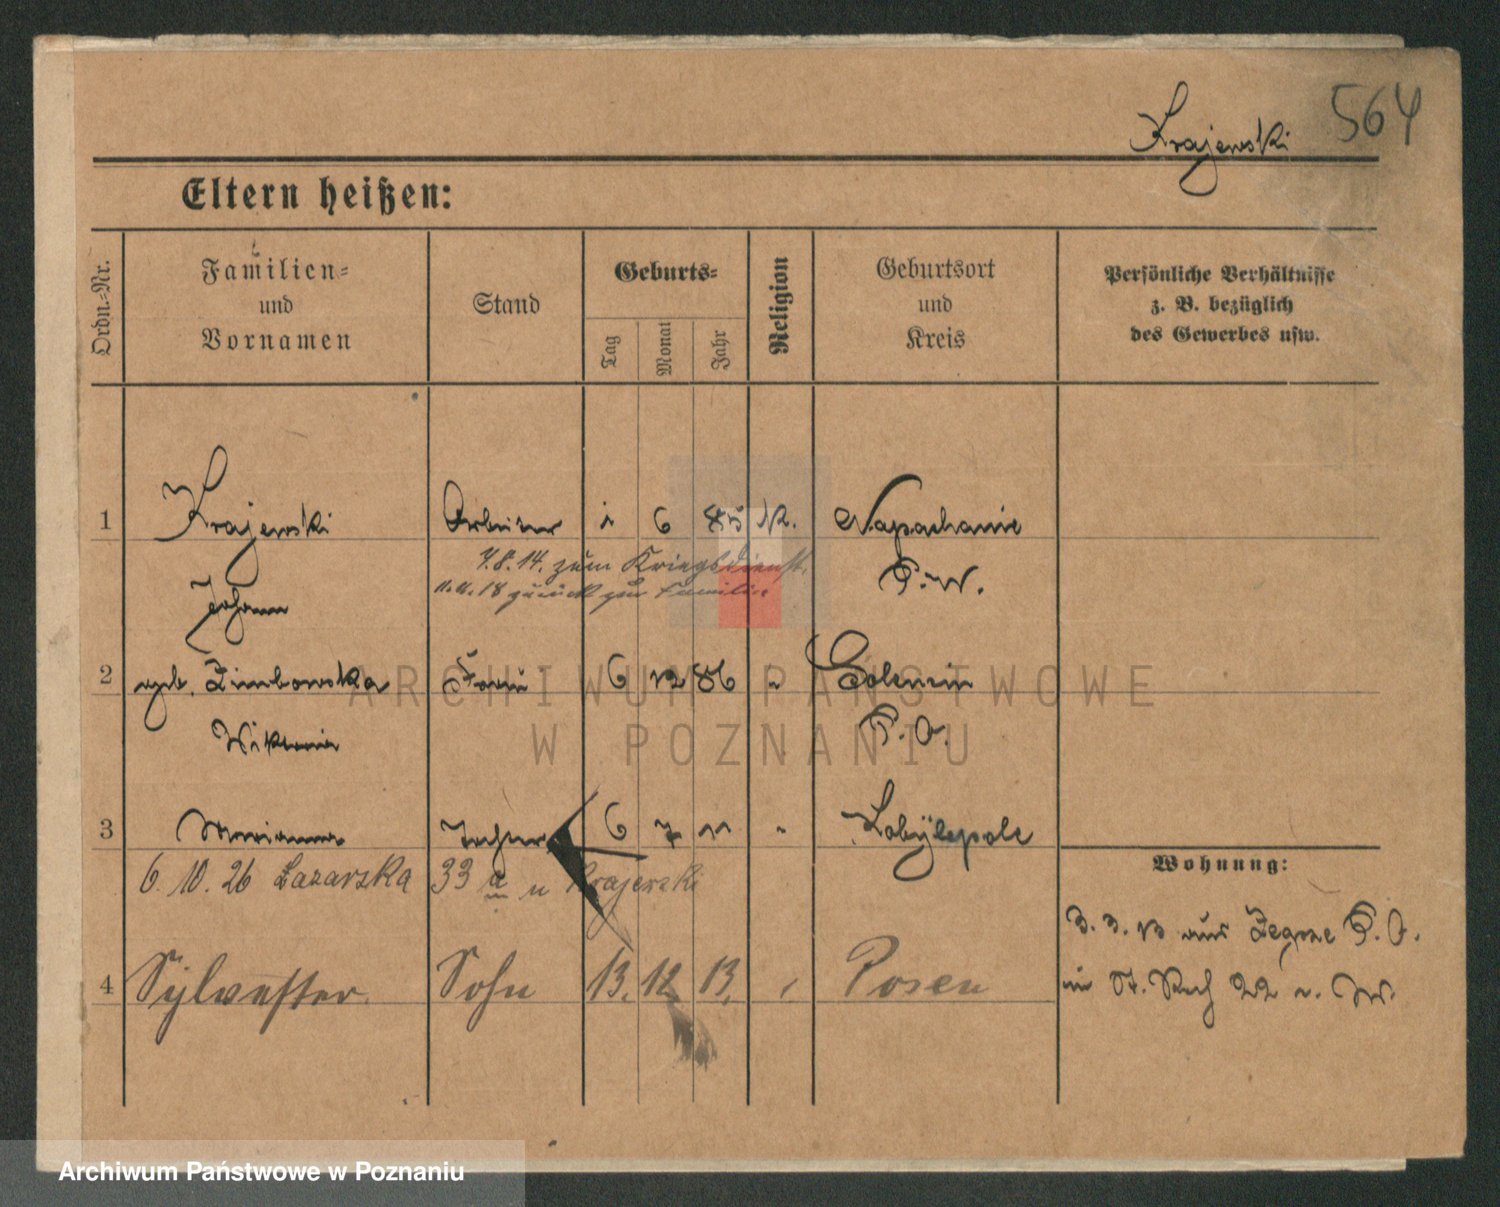 564
Krajewski
Eltern heißen:
Ordn.-Nr.
Familien-
und
Vornamen
Stand
Geburts-
Tag
Monat
Jahr
Religion
Geburtsort
und
Kreis
Persönliche Verhältnisse
z. B. bezüglich
des Gewerbes usw.
1 Krajewski Arbeiter 6 85 K. Napachanie
7.8.14. zum Kriegsdienst. P. W.
18 zurück zur Familie
Johann
2 geb. Zimbowska Frau 6 12 86 " Golencin
Wiktoria P. O.
3 Marianna Tochter 6 7 11 " Kobylepole
Wohnung:
6. 10. 26 Łazarska 33 a u Krajewski
3. 3. 13 aus Zegrze P. O.
4 Sylvester Sohn 13. 12 13. " Posen
in St. 22
ARCHIWUM PAŃSTWOWE
W POZNANIU
Archiwum Państwowe w Poznaniu